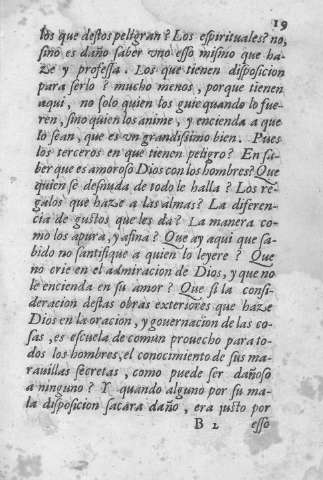 19
los que destos peligran? Los espirituales? no,
sino es daño saber vno esso mismo que ha-
ze y professa. Los que tienen disposicion
para serlo? mucho menos, porque tienen
aqui, no solo quien los guie quando lo fue-
ren, sino quien los anime, y encienda a que
lo sean, que es vn grandissimo bien. Pues
los terceros en que tienen peligro? En sa-
ber que es amoroso Dios con los hombres? Que
quien se desnuda de todo le halla? Los re-
galos que haze a las almas? La diferen-
cia de gustos que les da? La manera co-
mo los apura, y afina? Que ay aqui que sa-
bido no santifique a quien lo leyere? Que
no crie en el admiracion de Dios, y que no
le encienda en su amor? Que si la consi-
deracion destas obras exteriores que haze
Dios en la oracion, y governacion de las co-
sas, es escuela de comun prouecho para to-
dos los hombres, el conocimiento de sus ma-
rauillas secretas, como puede ser dañoso
a ninguno? Y quando alguno por su ma-
la disposicion sacara daño, era justo por
B 2 esso